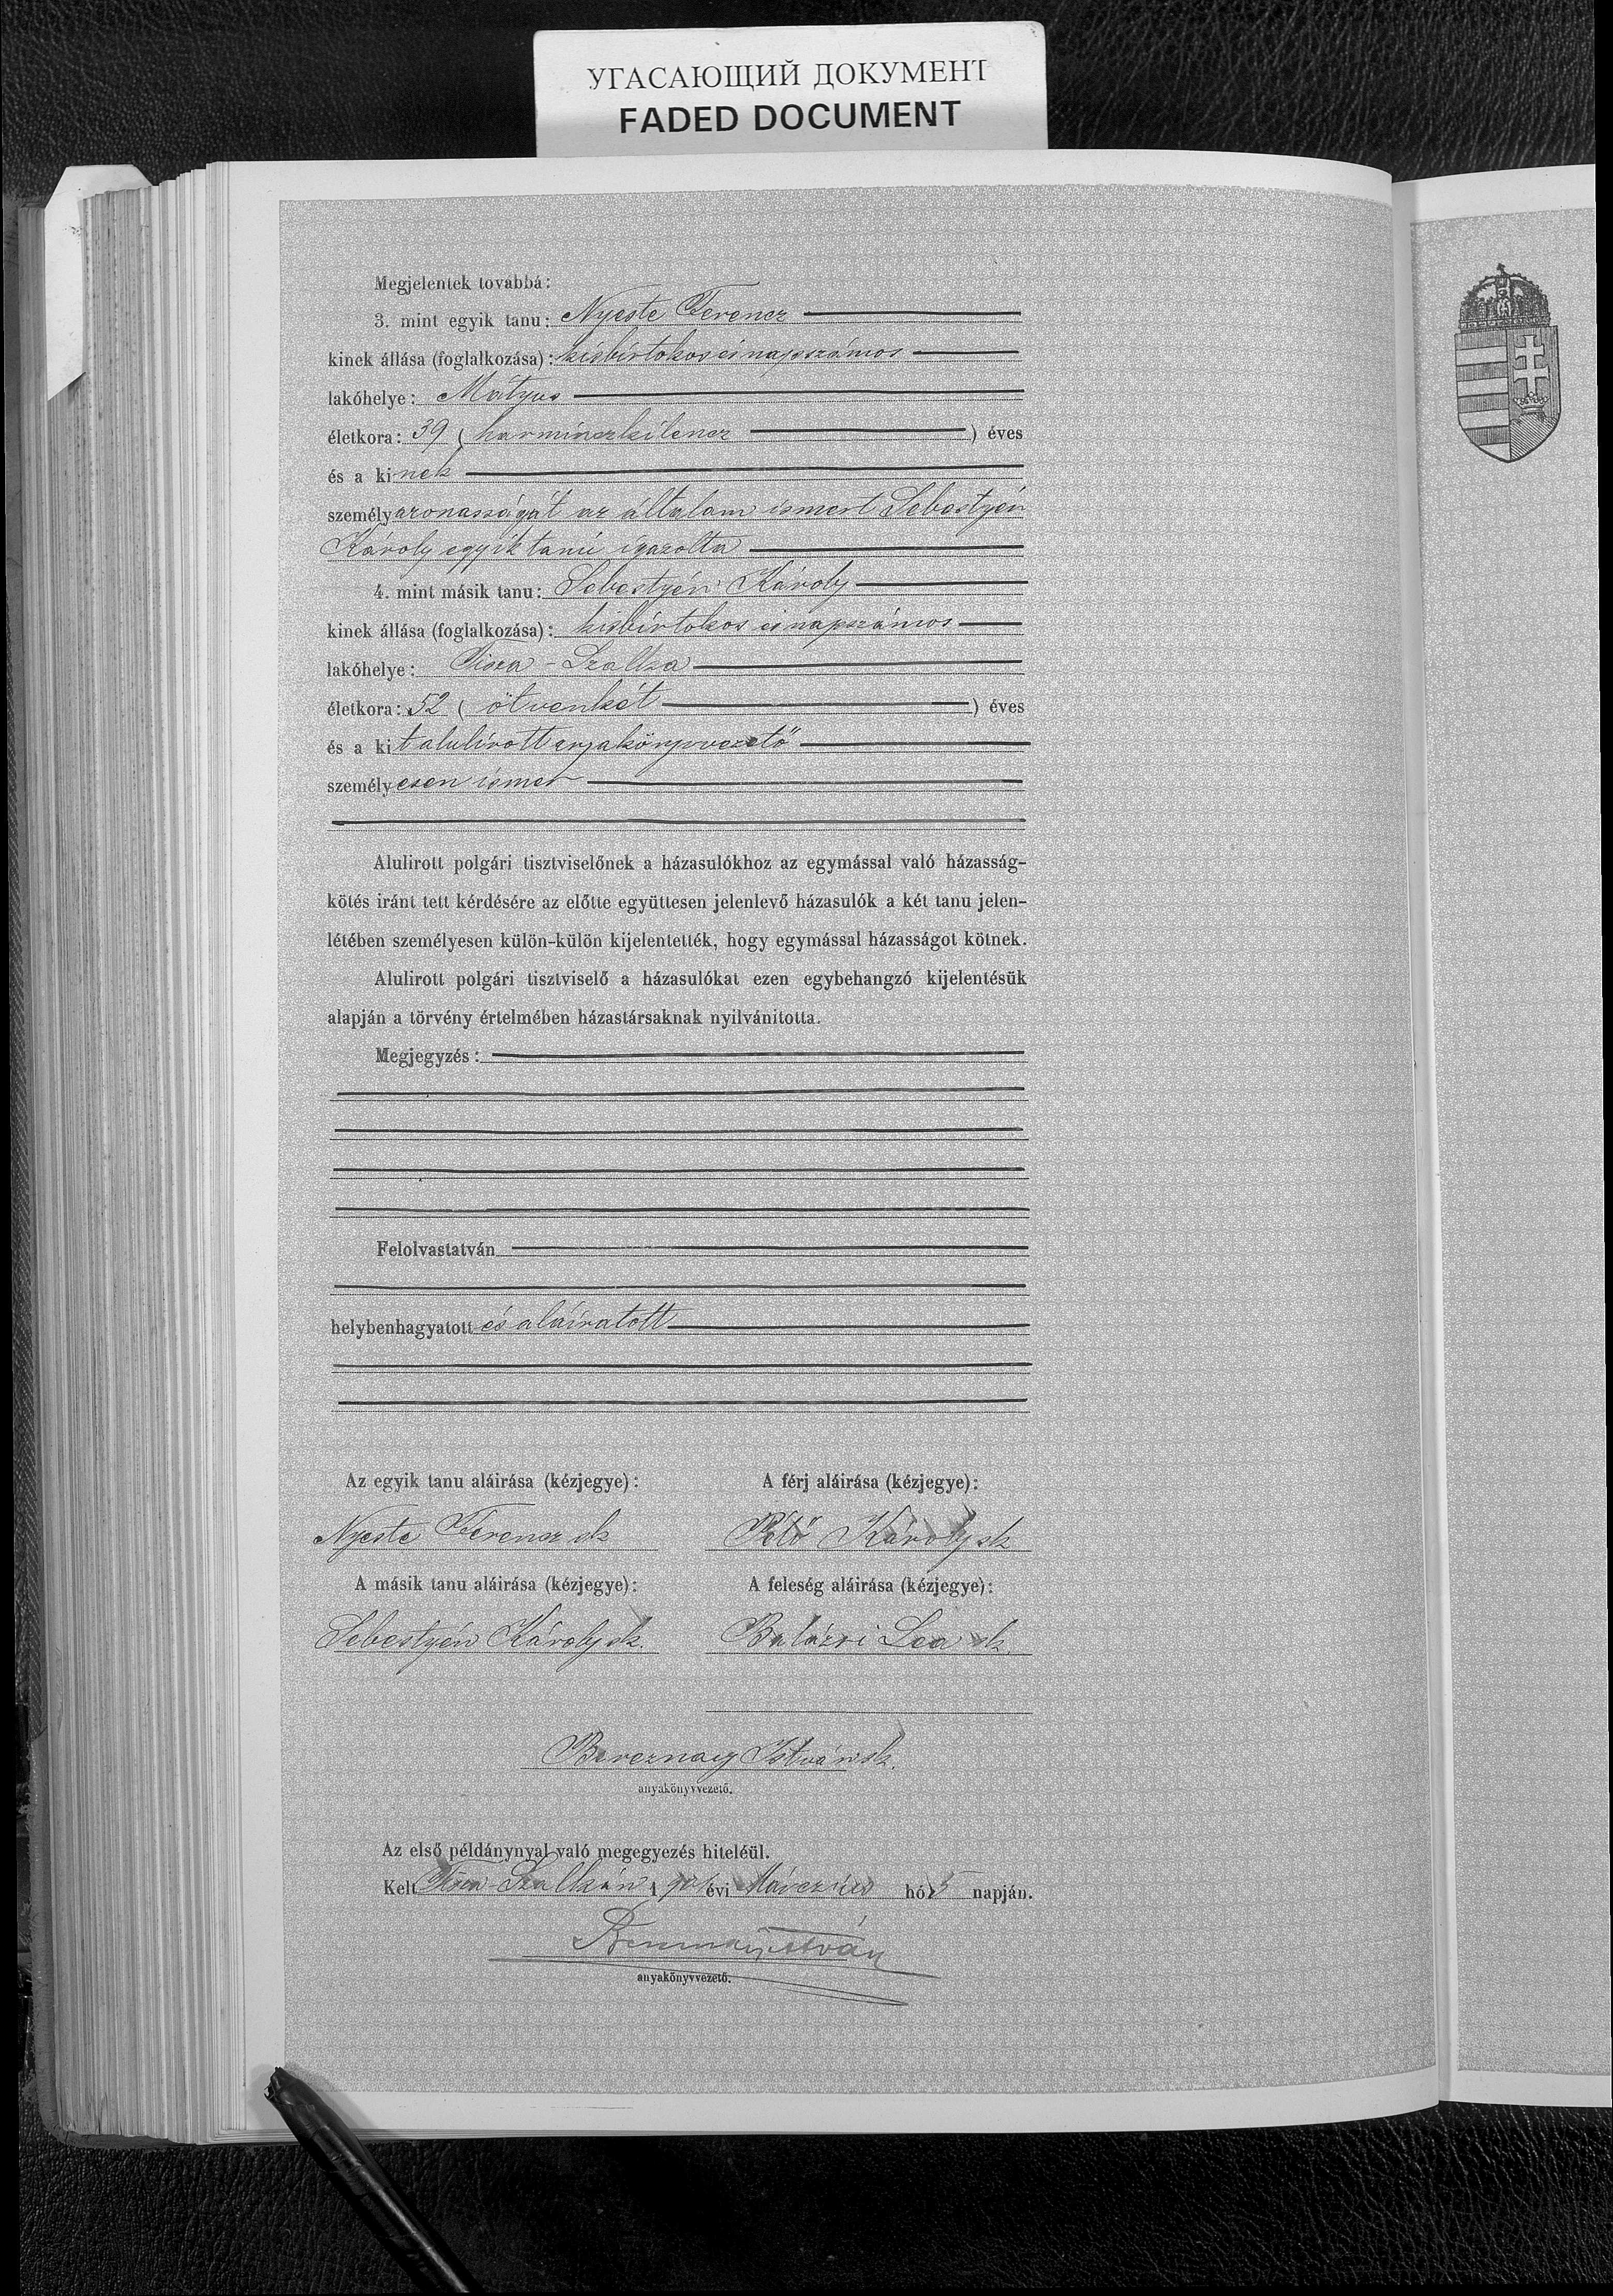 УГАСАЮЩИЙ ДОКУМЕНТ
FADED DOCUMENT
Megjelentek továbbá:
3. mint egyik tanu: Nyeste Ferencz
kinek állása (foglalkozása): kisbirtokos és napszámos
lakóhelye: Mátyus
életkora: 39 (harminczkilencz) éves
és a kinek
személyazonosságát az általam ismert Sebestyén
Károly egyik tanú igazolta
4. mint másik tanu: Sebestyén Károly
kinek állása (foglalkozása): kisbirtokos és napszámos
lakóhelye: Tisza-Szalka
életkora: 52 (ötvenkét) éves
és a kit alulirott anyakönyvvezető
személyesen ismer
Alulirott polgári tisztviselőnek a házasulókhoz az egymással való házasság-
kötés iránt tett kérdésére az előtte együttesen jelenlevő házasulók a két tanu jelen-
létében személyesen külön-külön kijelentették, hogy egymással házasságot kötnek.
Alulirott polgári tisztviselő a házasulókat ezen egybehangzó kijelentésük
alapján a törvény értelmében házastársaknak nyilvánitotta.
Megjegyzés:
Felolvastatván
helybenhagyatott és aláiratott
Az egyik tanu aláirása (kézjegye): A férj aláirása (kézjegye):
Nyeste Ferencz sk Pető Károly sk
A másik tanu aláirása (kézjegye): A feleség aláirása (kézjegye):
Sebestyén Károly sk. Balázsi Lea sk.
Bereznay István sk.
anyakönyvvezető.
Az első példánynyal való megegyezés hiteléül.
Kelt Tisza-Szalkán 1 évi Márczius hó 5 napján.
Bereznay István
anyakönyvvezető.